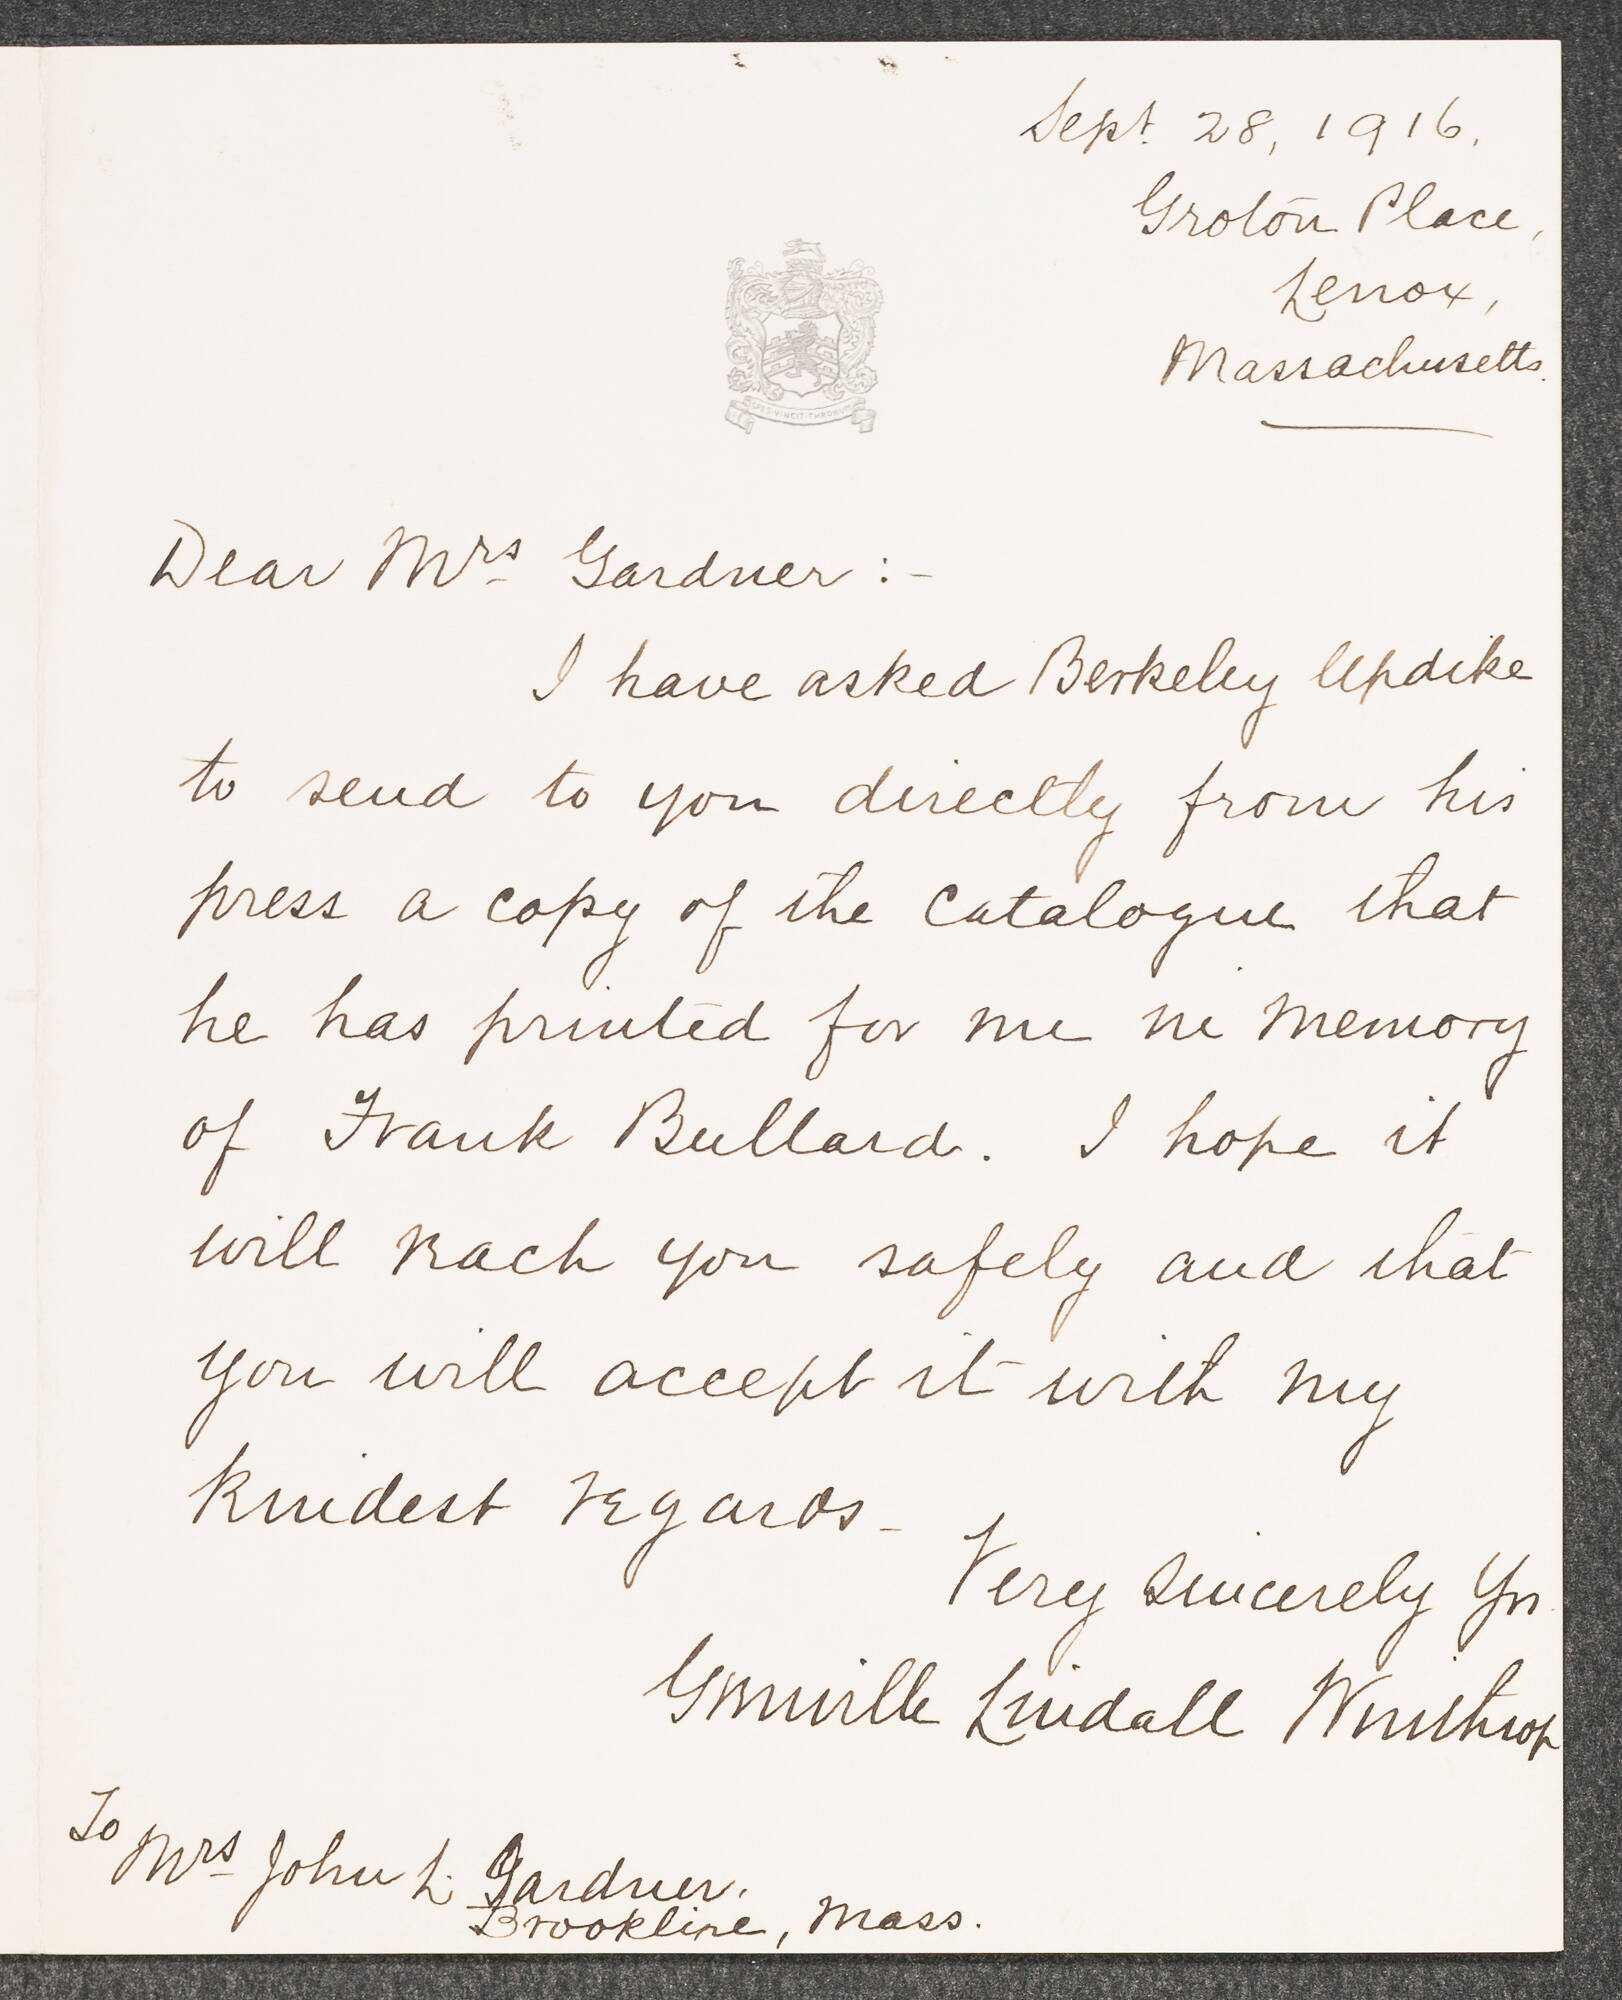 Sept. 28, 1916.
Groton Place,
Lenox,
Massachusetts.
SPES·VINCIT·THRONUM
Dear Mrs Gardner:-
I have asked Berkeley Updike
to send to you directly from his
press a copy of the catalogue that
he has printed for me in memory
of Frank Bullard. I hope it
will reach you safely and that
you will accept it with my
kindest regards-
Very sincerely Yrs
Grenville Lindall Winthrop
To
Mrs John L. Gardner.
Brookline, Mass.